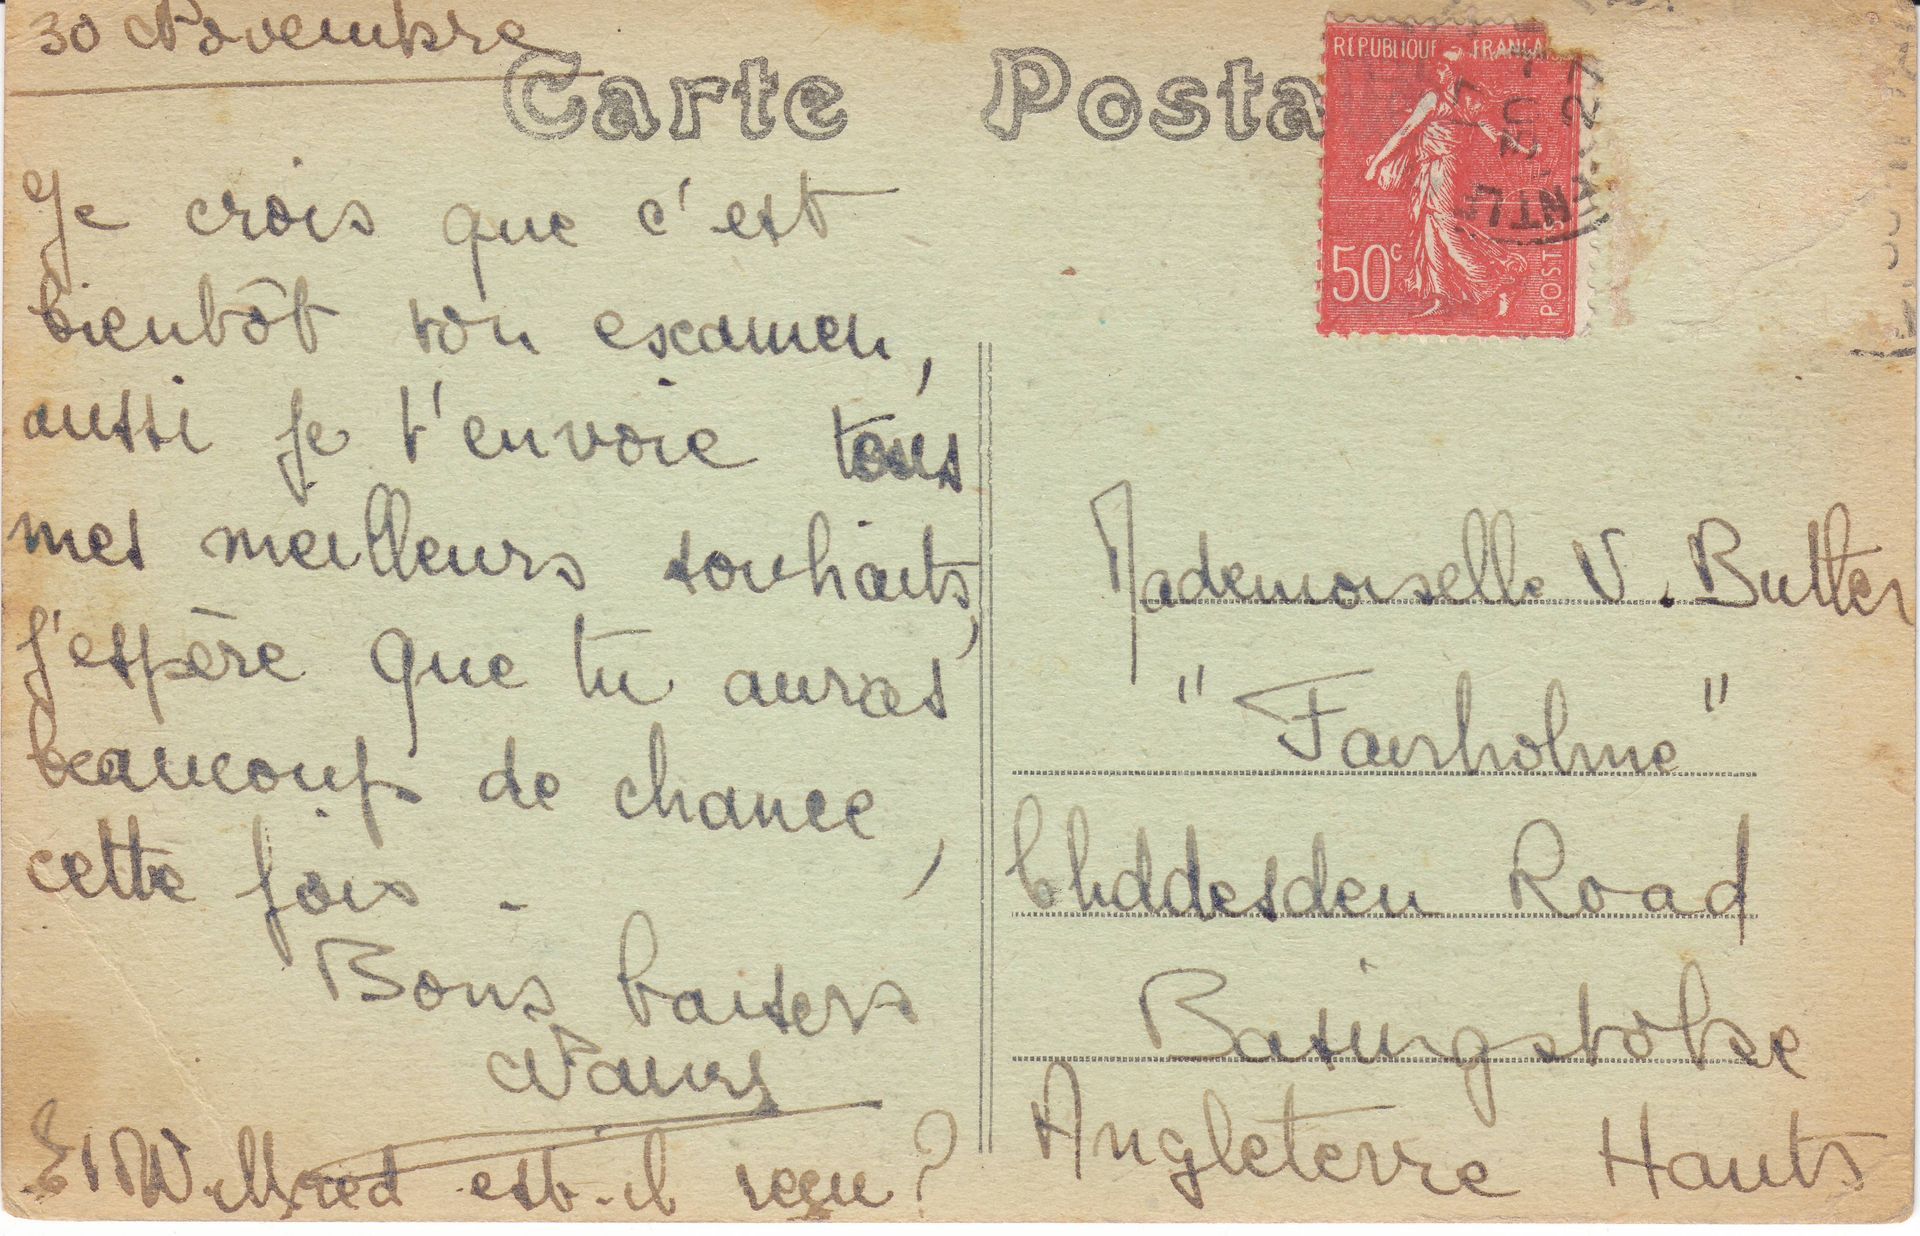 30 Novembre
Carte Posta
Je crois que c'est
bientôt ton examen,
aussi je t'envoie tous
mes meilleurs souhaits,
j'espère que tu auras
beaucoup de chance,
cette fois.
Bons baisers
Et Wilfred est-il reçu?
REPUBLIQUE FRANÇA
50c
POSTES
Mademoiselle V. Butler
"Fairholme"
Cliddesden Road
Basingstoke
Angleterre Hants